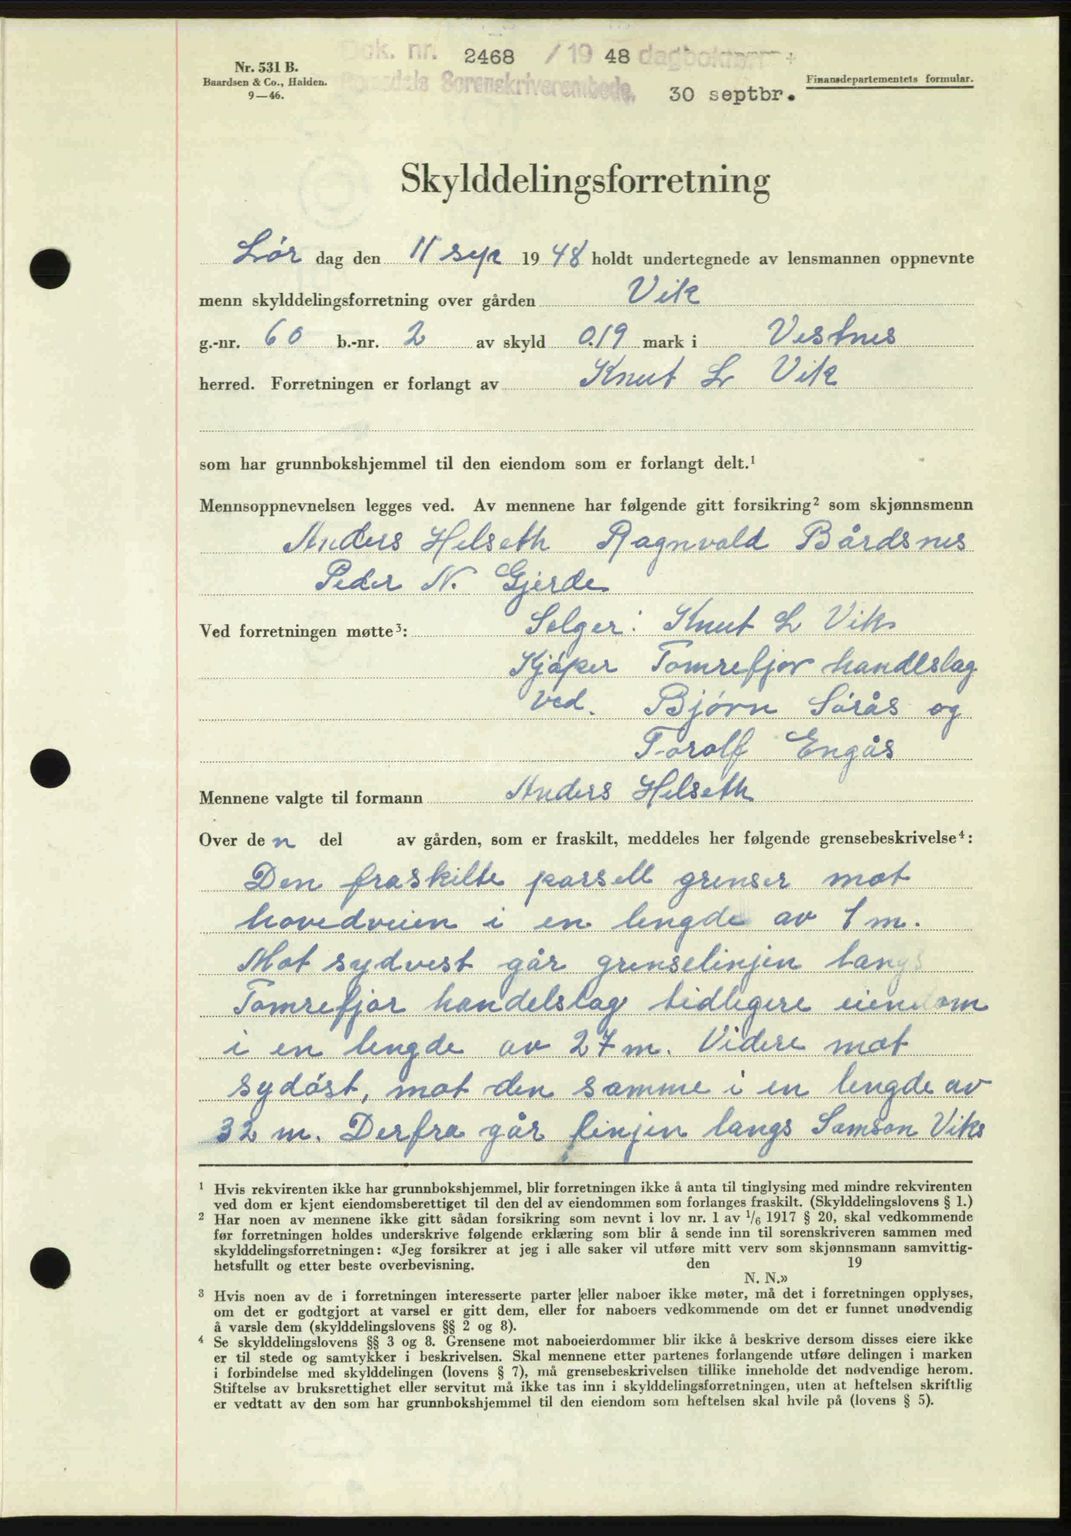 Nr. 531 B.
Baardsen & Co., Halden.
9—46.
Dok. nr. 2468 / 19 48 dagboknr.
Sorenskriverembede.
30 septbr.
Finansdepartementets formular.
Skylddelingsforretning
Lør dag den 11 sept 19 48 holdt undertegnede av lensmannen oppnevnte
menn skylddelingsforretning over gården Vik
g.-nr. 60 b.-nr. 2 av skyld 0.19 mark i Vestnes
herred. Forretningen er forlangt av Knut L Vik
som har grunnbokshjemmel til den eiendom som er forlangt delt.¹
Mennsoppnevnelsen legges ved. Av mennene har følgende gitt forsikring² som skjønnsmenn
Anders Helseth Ragnvald Bårdsnes
Peder N. Gjerde
Ved forretningen møtte³: Selger: Knut L Vik
Kjøper Tomrefjor handelslag
ved. Bjørn Sørås og
Torolf Engås
Mennene valgte til formann Anders Helseth
Over den del av gården, som er fraskilt, meddeles her følgende grensebeskrivelse⁴:
Den fraskilte parsell grenser mot
hovedveien i en lengde av 1 m.
Mot sydvest går grenselinjen langs
Tomrefjor handelslag tidligere eiendom
i en lengde av 27 m. Videre mot
sydøst, mot den samme i en lengde av
32 m. Derfra går linjen langs Samson Viks
¹ Hvis rekvirenten ikke har grunnbokshjemmel, blir forretningen ikke å anta til tinglysing med mindre rekvirenten
ved dom er kjent eiendomsberettiget til den del av eiendommen som forlanges fraskilt. (Skylddelingslovens § 1.)
² Har noen av mennene ikke gitt sådan forsikring som nevnt i lov nr. 1 av 1/6 1917 § 20, skal vedkommende
før forretningen holdes underskrive følgende erklæring som blir å sende inn til sorenskriveren sammen med
skylddelingsforretningen: «Jeg forsikrer at jeg i alle saker vil utføre mitt verv som skjønnsmann samvittig-
hetsfullt og etter beste overbevisning. den 19
N. N.»
³ Hvis noen av de i forretningen interesserte parter eller naboer ikke møter, må det i forretningen opplyses,
om det er godtgjort at varsel er gitt dem, eller for naboers vedkommende om det er funnet unødvendig
å varsle dem (skylddelingslovens §§ 2 og 8).
⁴ Se skylddelingslovens §§ 3 og 8. Grensene mot naboeierdommer blir ikke å beskrive dersom disses eiere ikke
er til stede og samtykker i beskrivelsen. Skal mennene etter partenes forlangende utføre delingen i marken
i forbindelse med skylddelingen (lovens § 7), må grensebeskrivelsen tillike inneholde det nødvendige herom.
Stiftelse av bruksrettighet eller servitut må ikke tas inn i skylddelingsforretningen, uten at heftelsen skriftlig
er vedtatt av den som har grunnbokshjemmel til den eiendom som heftelsen skal hvile på (lovens § 5).